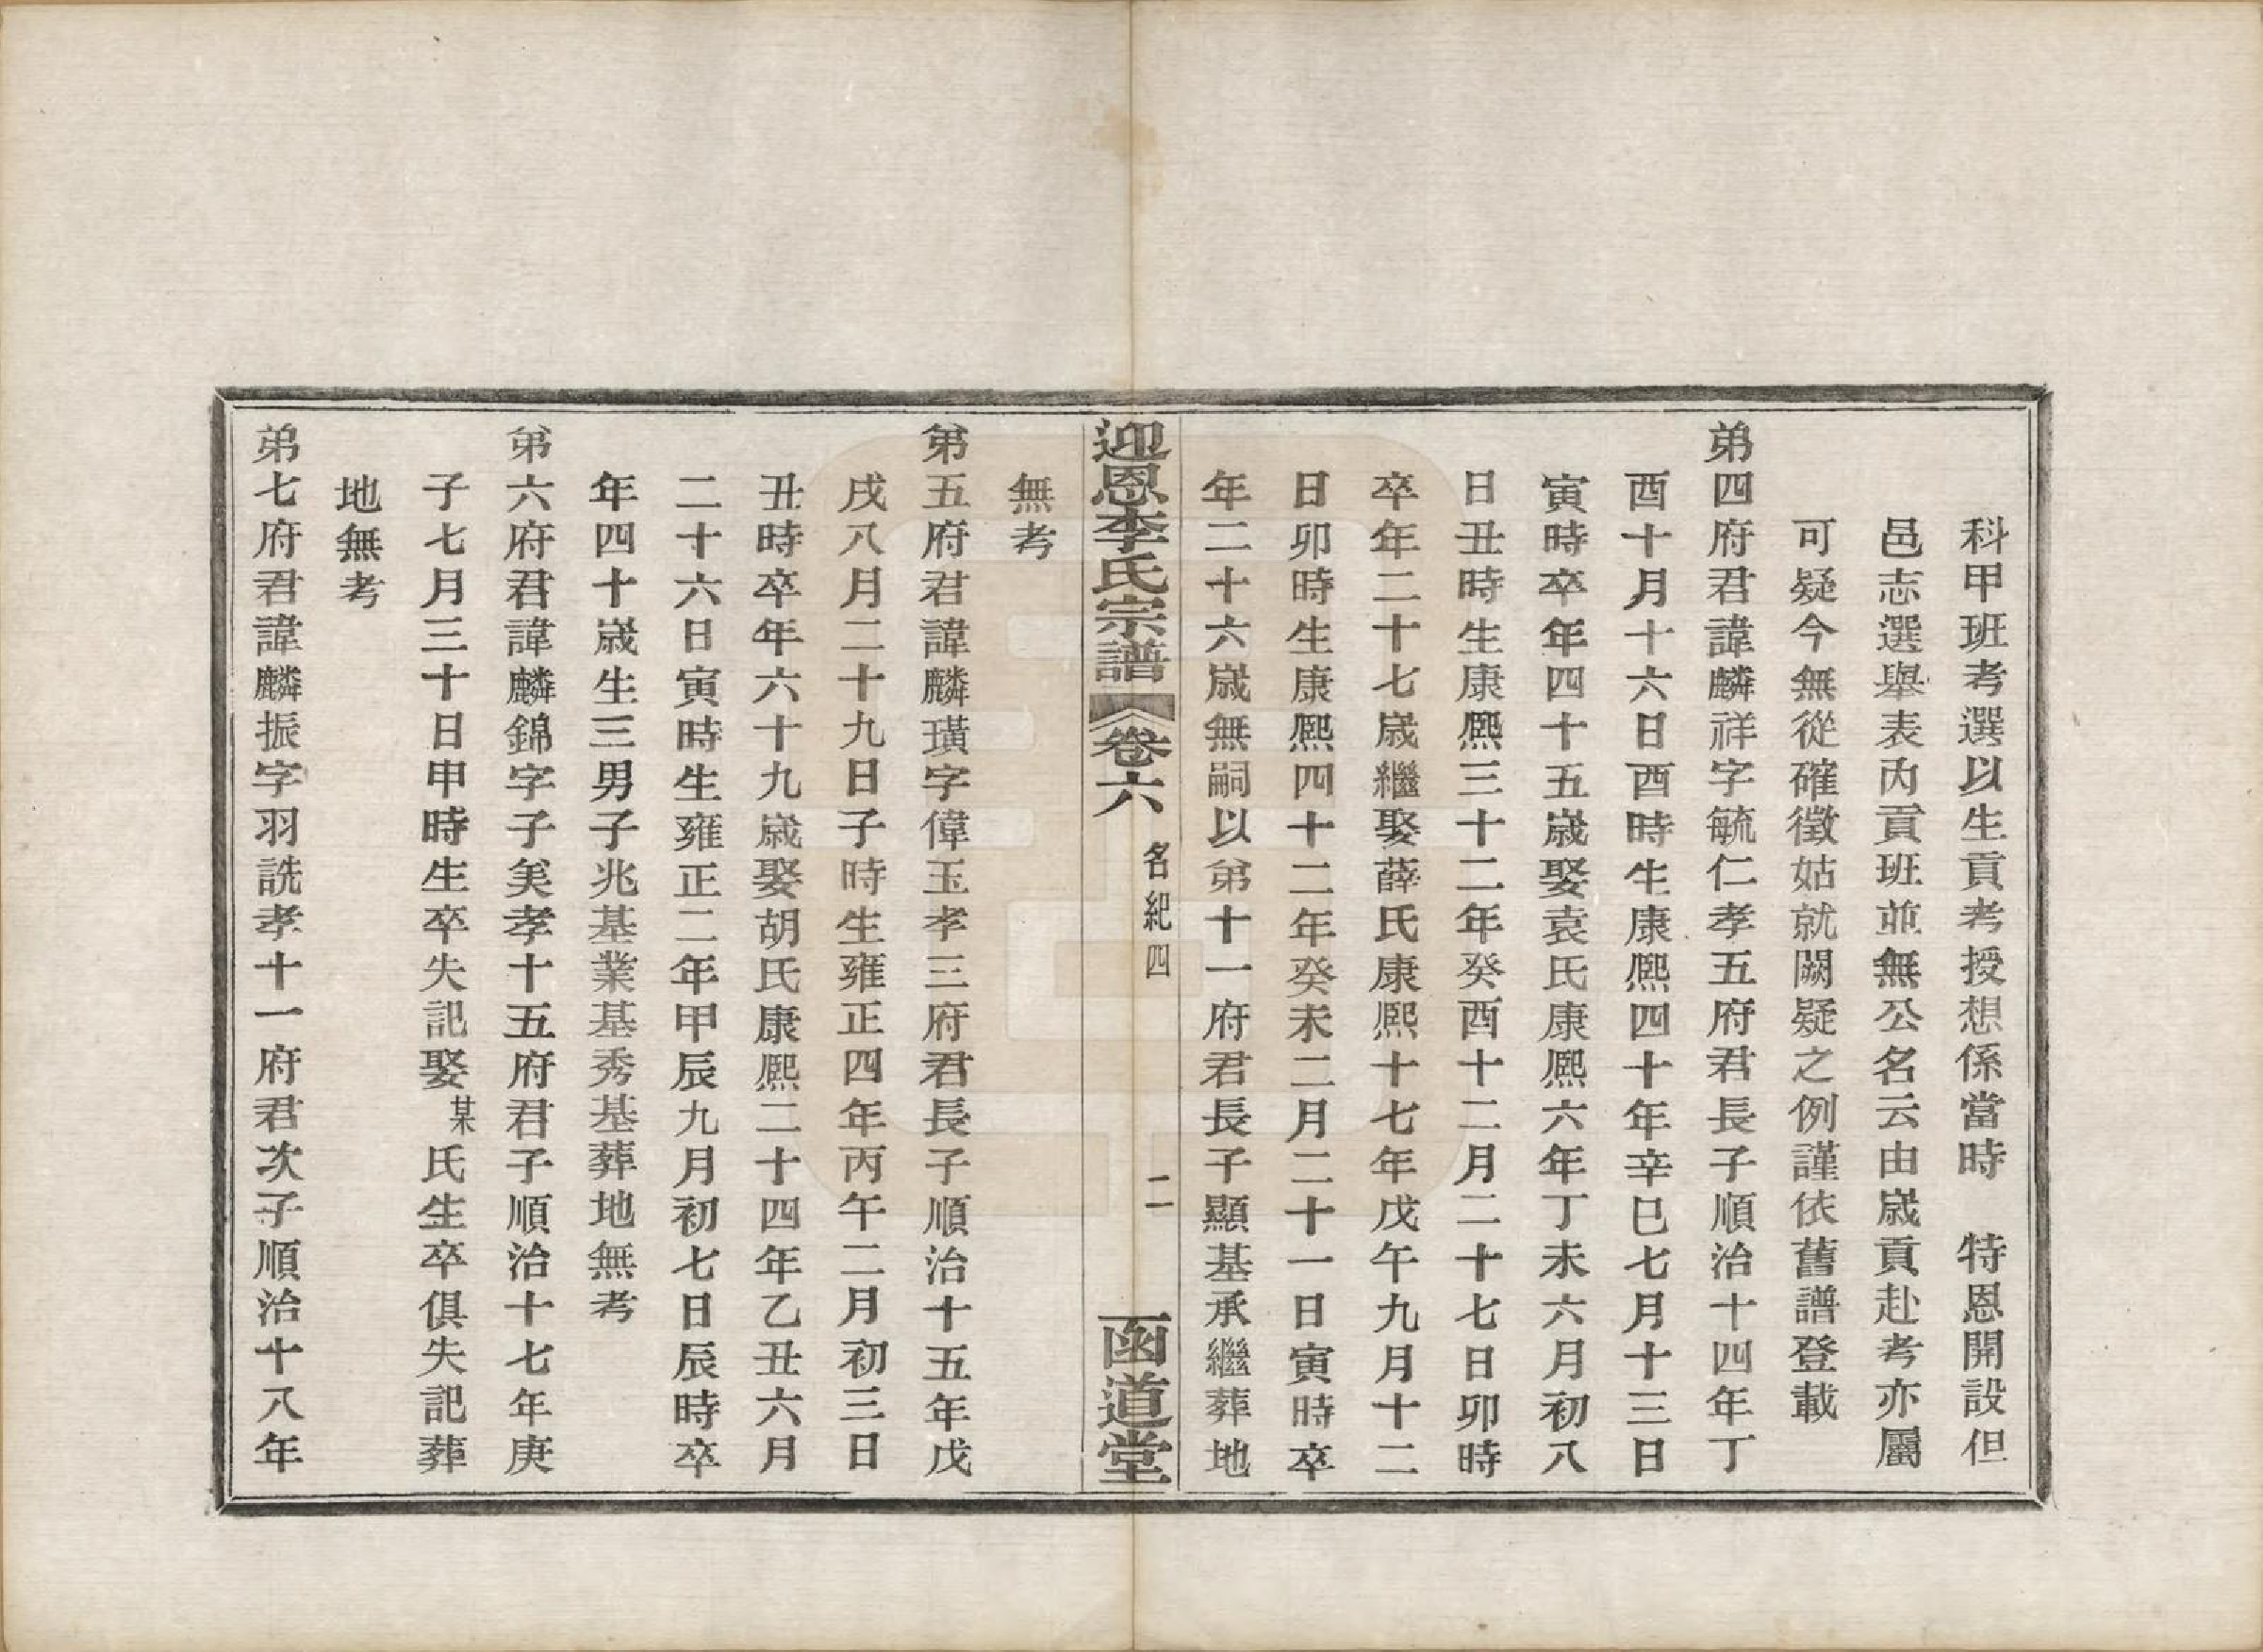 科甲班考選以生貢考授想係當時　特恩開設但
邑志選舉表內貢班並無公名云由歲貢赴考亦屬
可疑今無從確徵姑就闕疑之例謹依舊譜登載
弟四府君諱麟祥字毓仁孝五府君長子順治十四年丁
酉十月十六日酉時生康熙四十年辛巳七月十三日
寅時卒年四十五歲娶袁氏康熙六年丁未六月初八
日丑時生康熙三十二年癸酉十二月二十七日卯時
卒年二十七歲繼娶薛氏康熙十七年戊午九月十二
日卯時生康熙四十二年癸未二月二十一日寅時卒
年二十六歲無嗣以弟十一府君長子顯基承繼葬地
無考
迎恩李氏宗譜 卷六 名紀四 二 函道堂
弟五府君諱麟璜字偉玉孝三府君長子順治十五年戊
戌八月二十九日子時生雍正四年丙午二月初三日
丑時卒年六十九歲娶胡氏康熙二十四年乙丑六月
二十六日寅時生雍正二年甲辰九月初七日辰時卒
年四十歲生三男子兆基業基秀基葬地無考
弟六府君諱麟錦字子美孝十五府君子順治十七年庚
子七月三十日申時生卒失記娶某氏生卒俱失記葬
地無考
弟七府君諱麟振字羽詵孝十一府君次子順治十八年